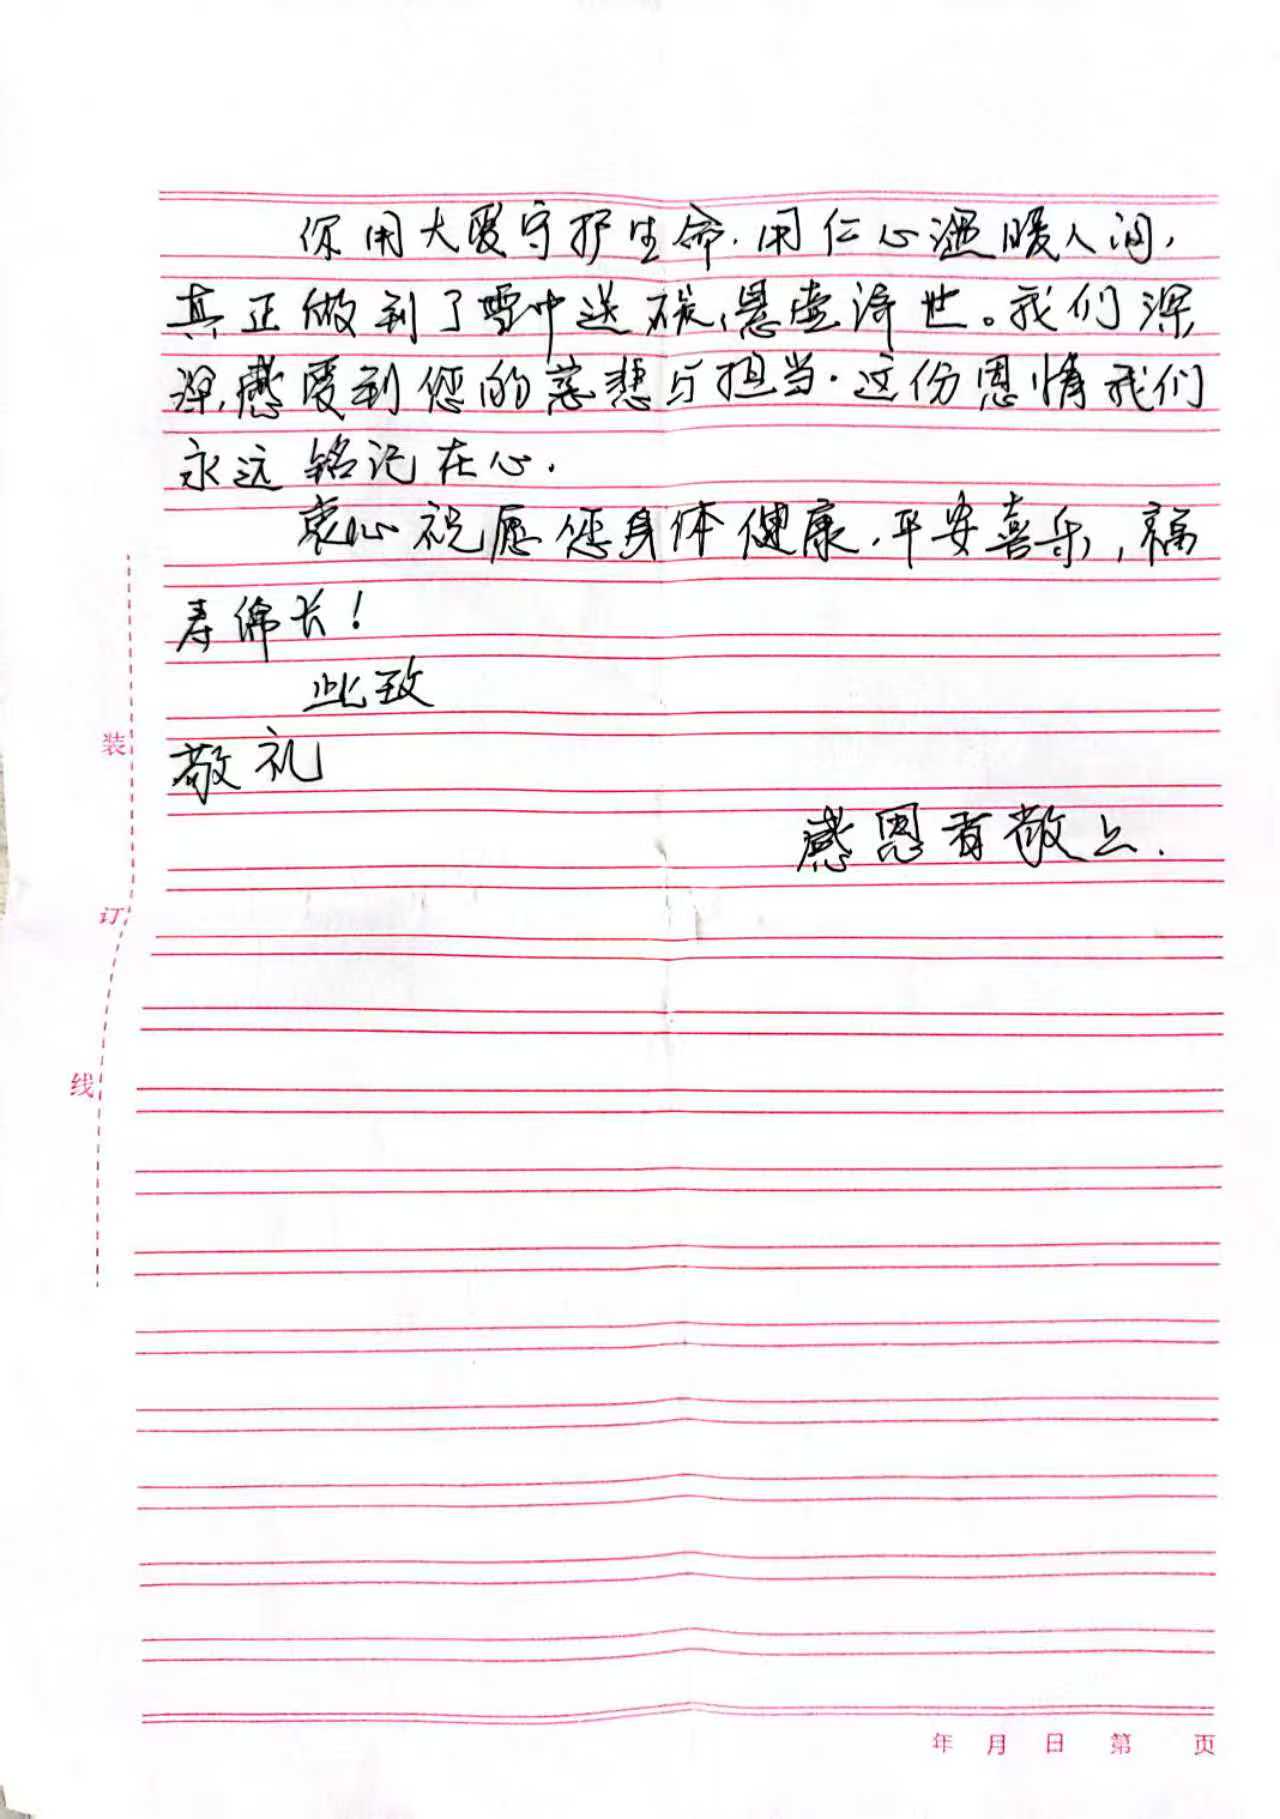 你用大爱守护生命.用仁心温暖人间,
真正做到了雪中送碳,悬壶济世。我们深
深感受到您的慈悲与担当.这份恩情我们
永远铭记在心.
衷心祝愿您身体健康.平安喜乐,福
寿绵长!
此致
装
敬礼
感恩者敬上.
订
线
年 月 日 第 页